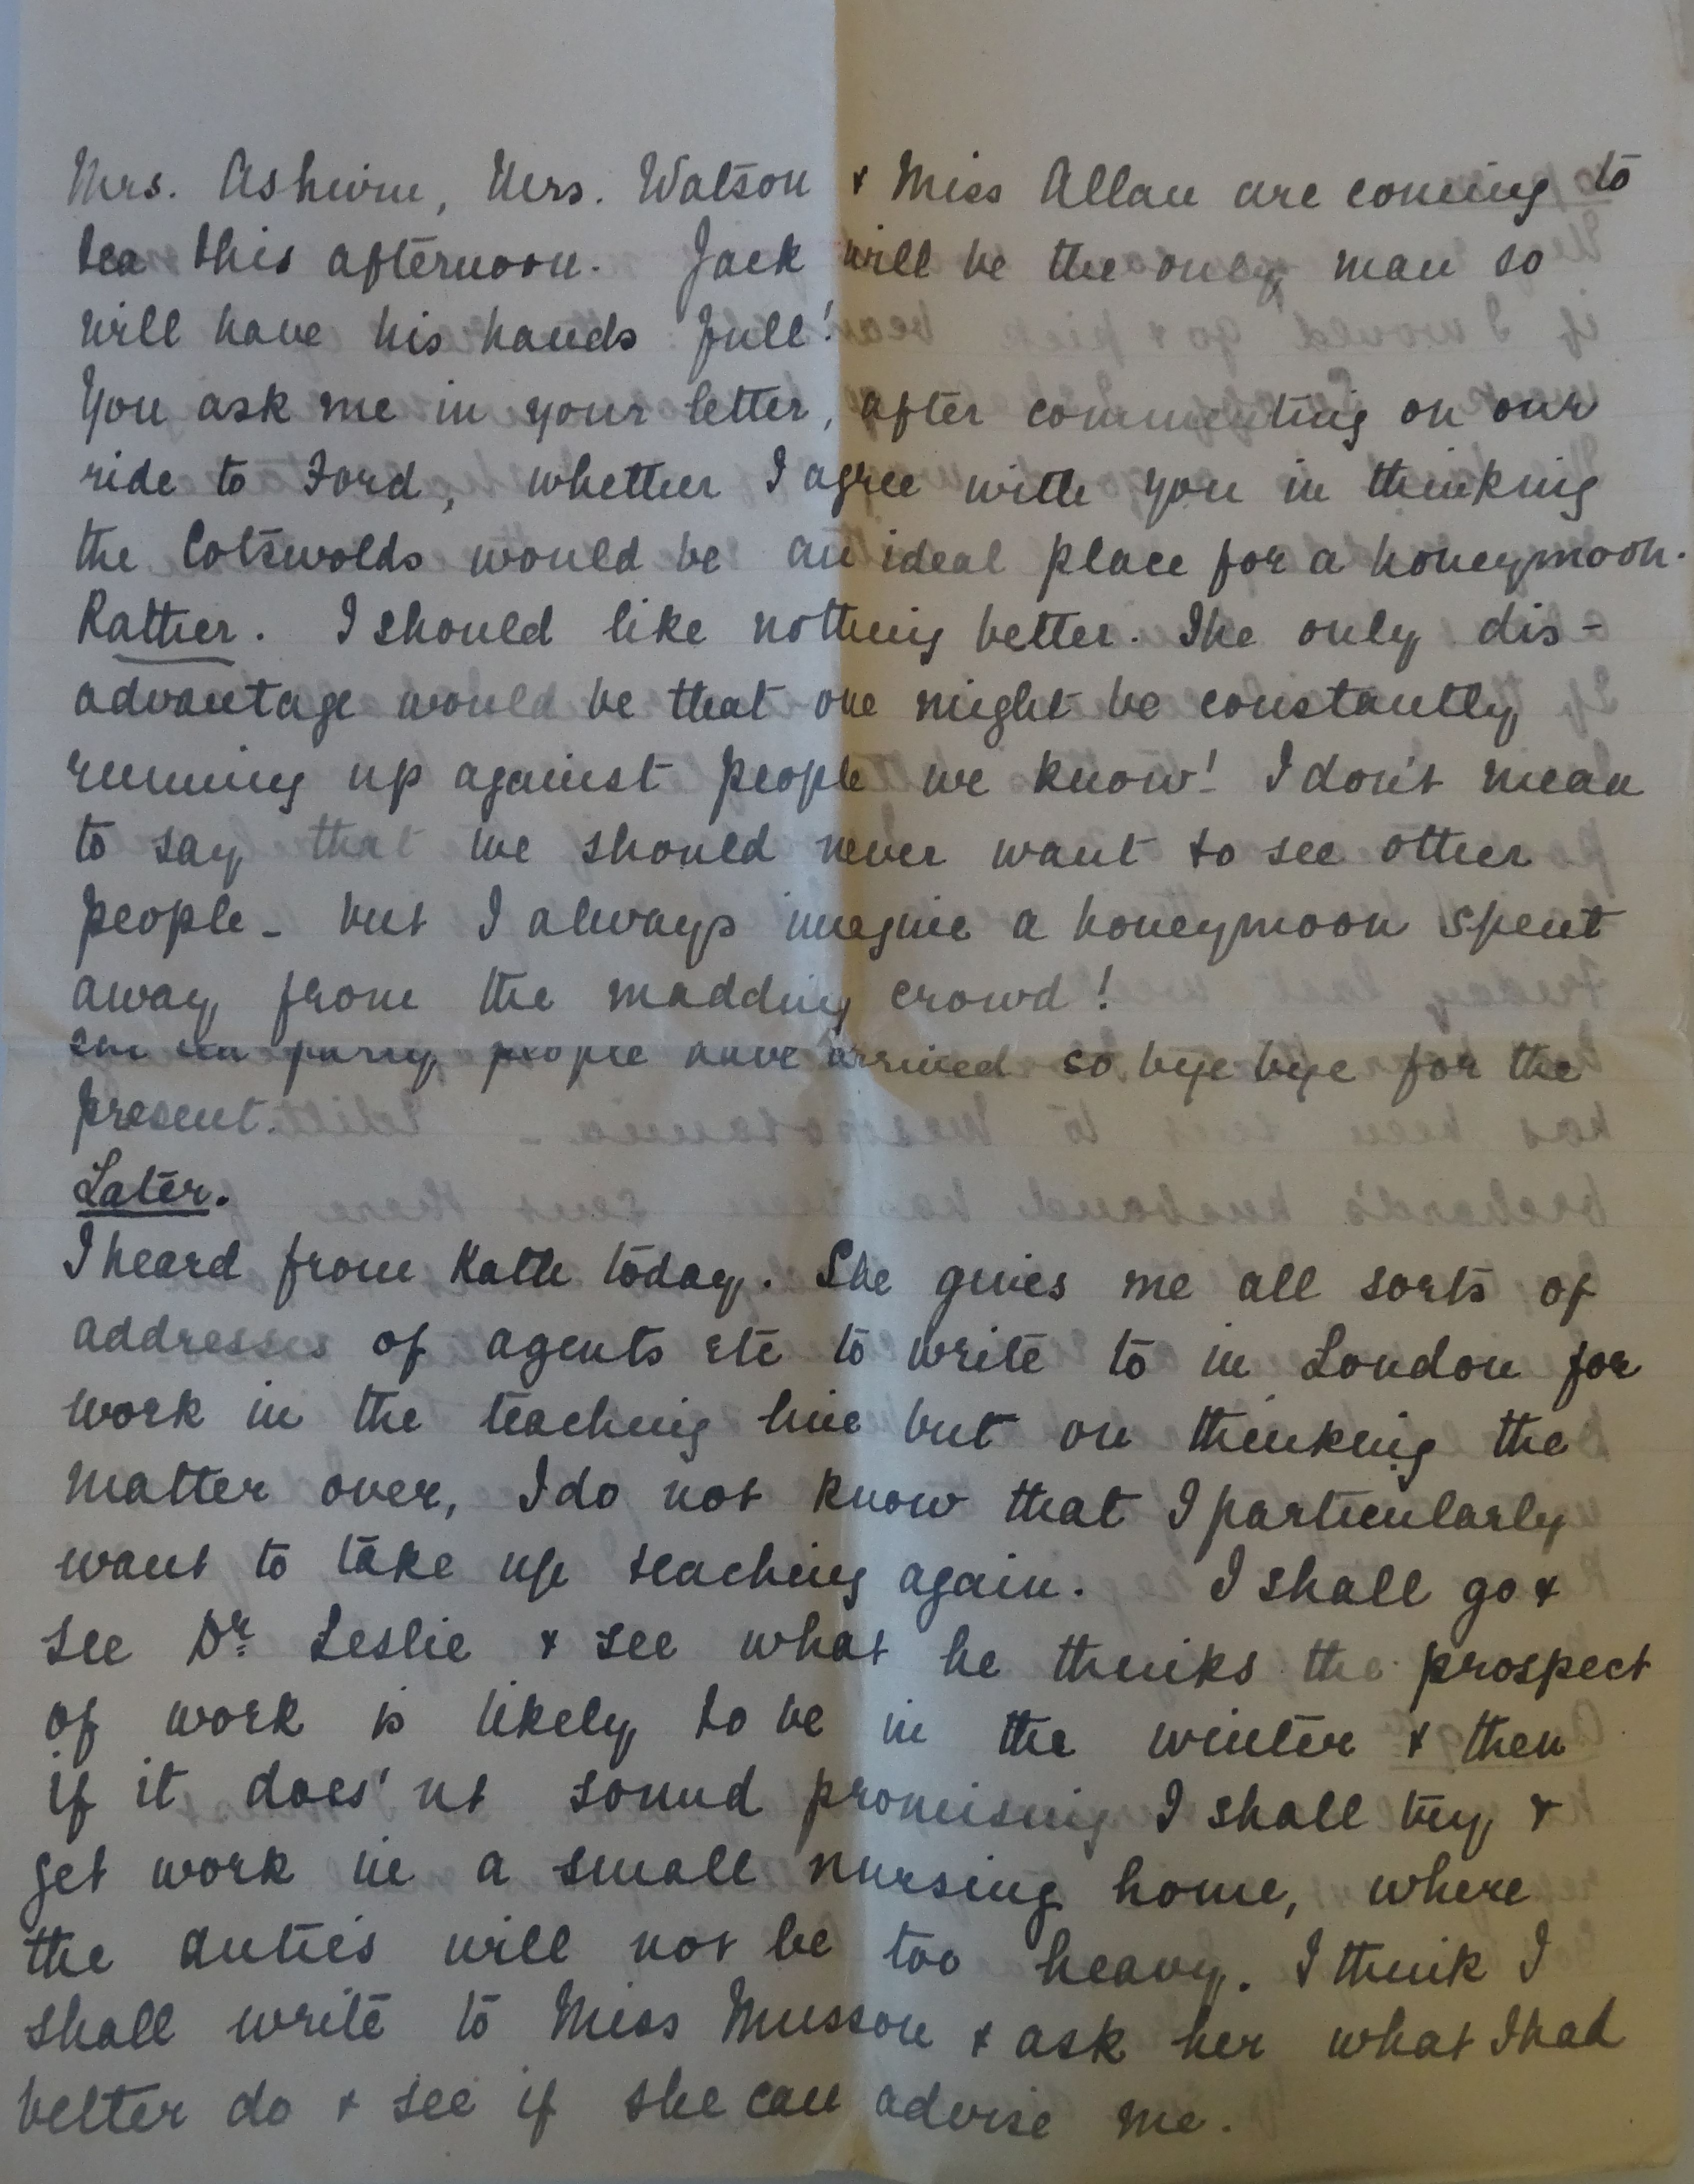 Mrs. Ashwin, Mrs. Watson & Miss Allan are coming to
tea this afternoon. Jack will be the only man so
will have his hands full!
You ask me in your letter, after commenting on our
ride to Ford, whether I agree with you in thinking
the Cotswolds would be an ideal place for a honeymoon.
Rather. I should like nothing better. The only dis-
advantage would be that one might be constantly
running up against people we know! I don't mean
to say that we should never want to see other
people - but I always imagine a honeymoon spent
away from the madding crowd!
party people have arrived so bye bye for the
present.
Later.
I heard from Kath today. She gives me all sorts of
addresses of agents etc to write to in London for
work in the teaching line but on thinking the
matter over, I do not know that I particularly
want to take up teaching again. I shall go &
see Dr. Leslie & see what he thinks the prospect
of work is likely to be in the winter & then
if it does'nt sound promising I shall try &
get work in a small nursing home, where
the duties will not be too heavy. I think I
shall write to Miss Musson & ask her what I had
better do & see if she can advise me.